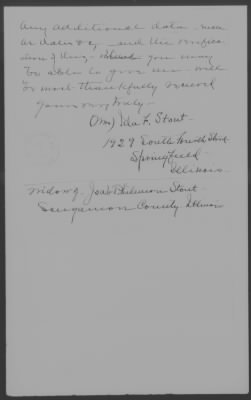 any additional data - new
or dates of and the
of this you may
be able to give me - will
be most thankfully received
Yours very truly -
(Mrs) Ida F. Stout -
1929 South Fourth Street
Springfield
Illinois -
Widow of - Job Philemon Stout -
Sangamon County - Illinois